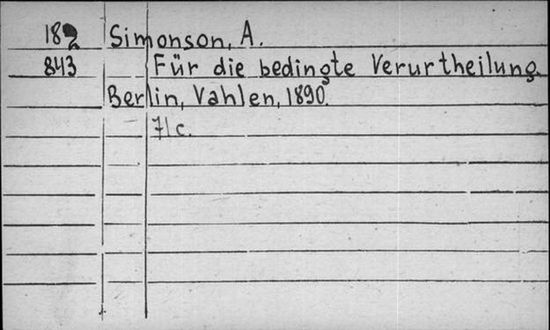 182 Simonson, A.
843 Für die bedingte Verurtheilung.
Berlin, Vahlen, 1890.
71 c.